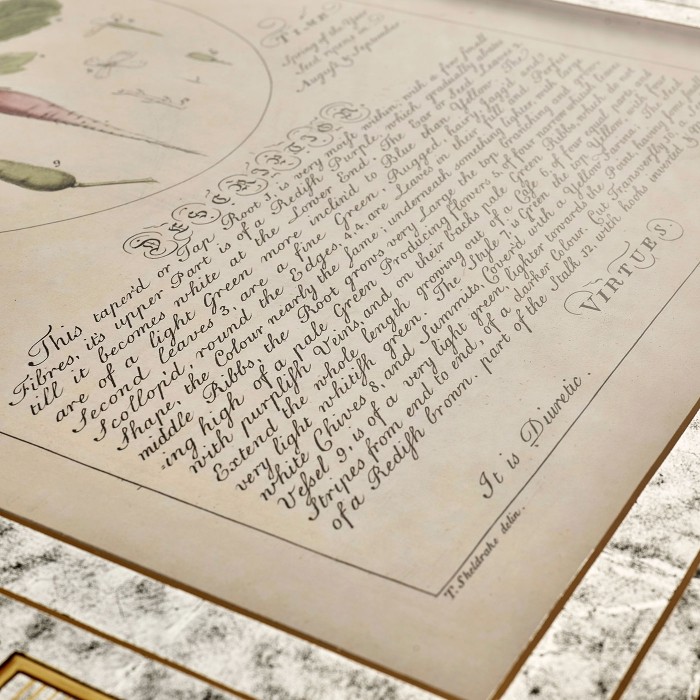 TIME
Spring of the Year
Seed ripens in
August & September
DESCRIPTION
This taper'd or Tap Root 1, is very moist within; with a few small
Fibres, it's upper Part is of a Redish Purple, which gradually
till it becomes white at the Lower End. The Ear or Seed Leaves 2,
are of a light Green more inclin'd to Blue than Yellow. The
Second leaves 3, are a fine Green, Rugged, hairy, Jagg'd and
Scollop'd, round the Edges, 4.4. are Leaves in their full and
Shape, the Colour nearly the same; underneath something lighter, with large
middle Ribbs; the Root grows very Large the top branching and
ing high of a pale Green Producing flowers 5, of four narrow white leaves
with purplish Veins, and on their backs pale Green Ribbs, which do not
Extend the whole length growing out of a Cup 6, of four equal parts
very light whitish green. The Style 7, is Green the top Yellow, the
white Chives 8, and Summits, Cover'd with a Yellow Farina. The Seed
Vessel 9, is of a very light green, lighter towards the Point, having
Stripes from end to end, of a darker Colour. Cut Transversly
of a Redish brown part of the Stalk 12, with hooks
VIRTUES
It is Diuretic
T. Sheldrake delin.
9